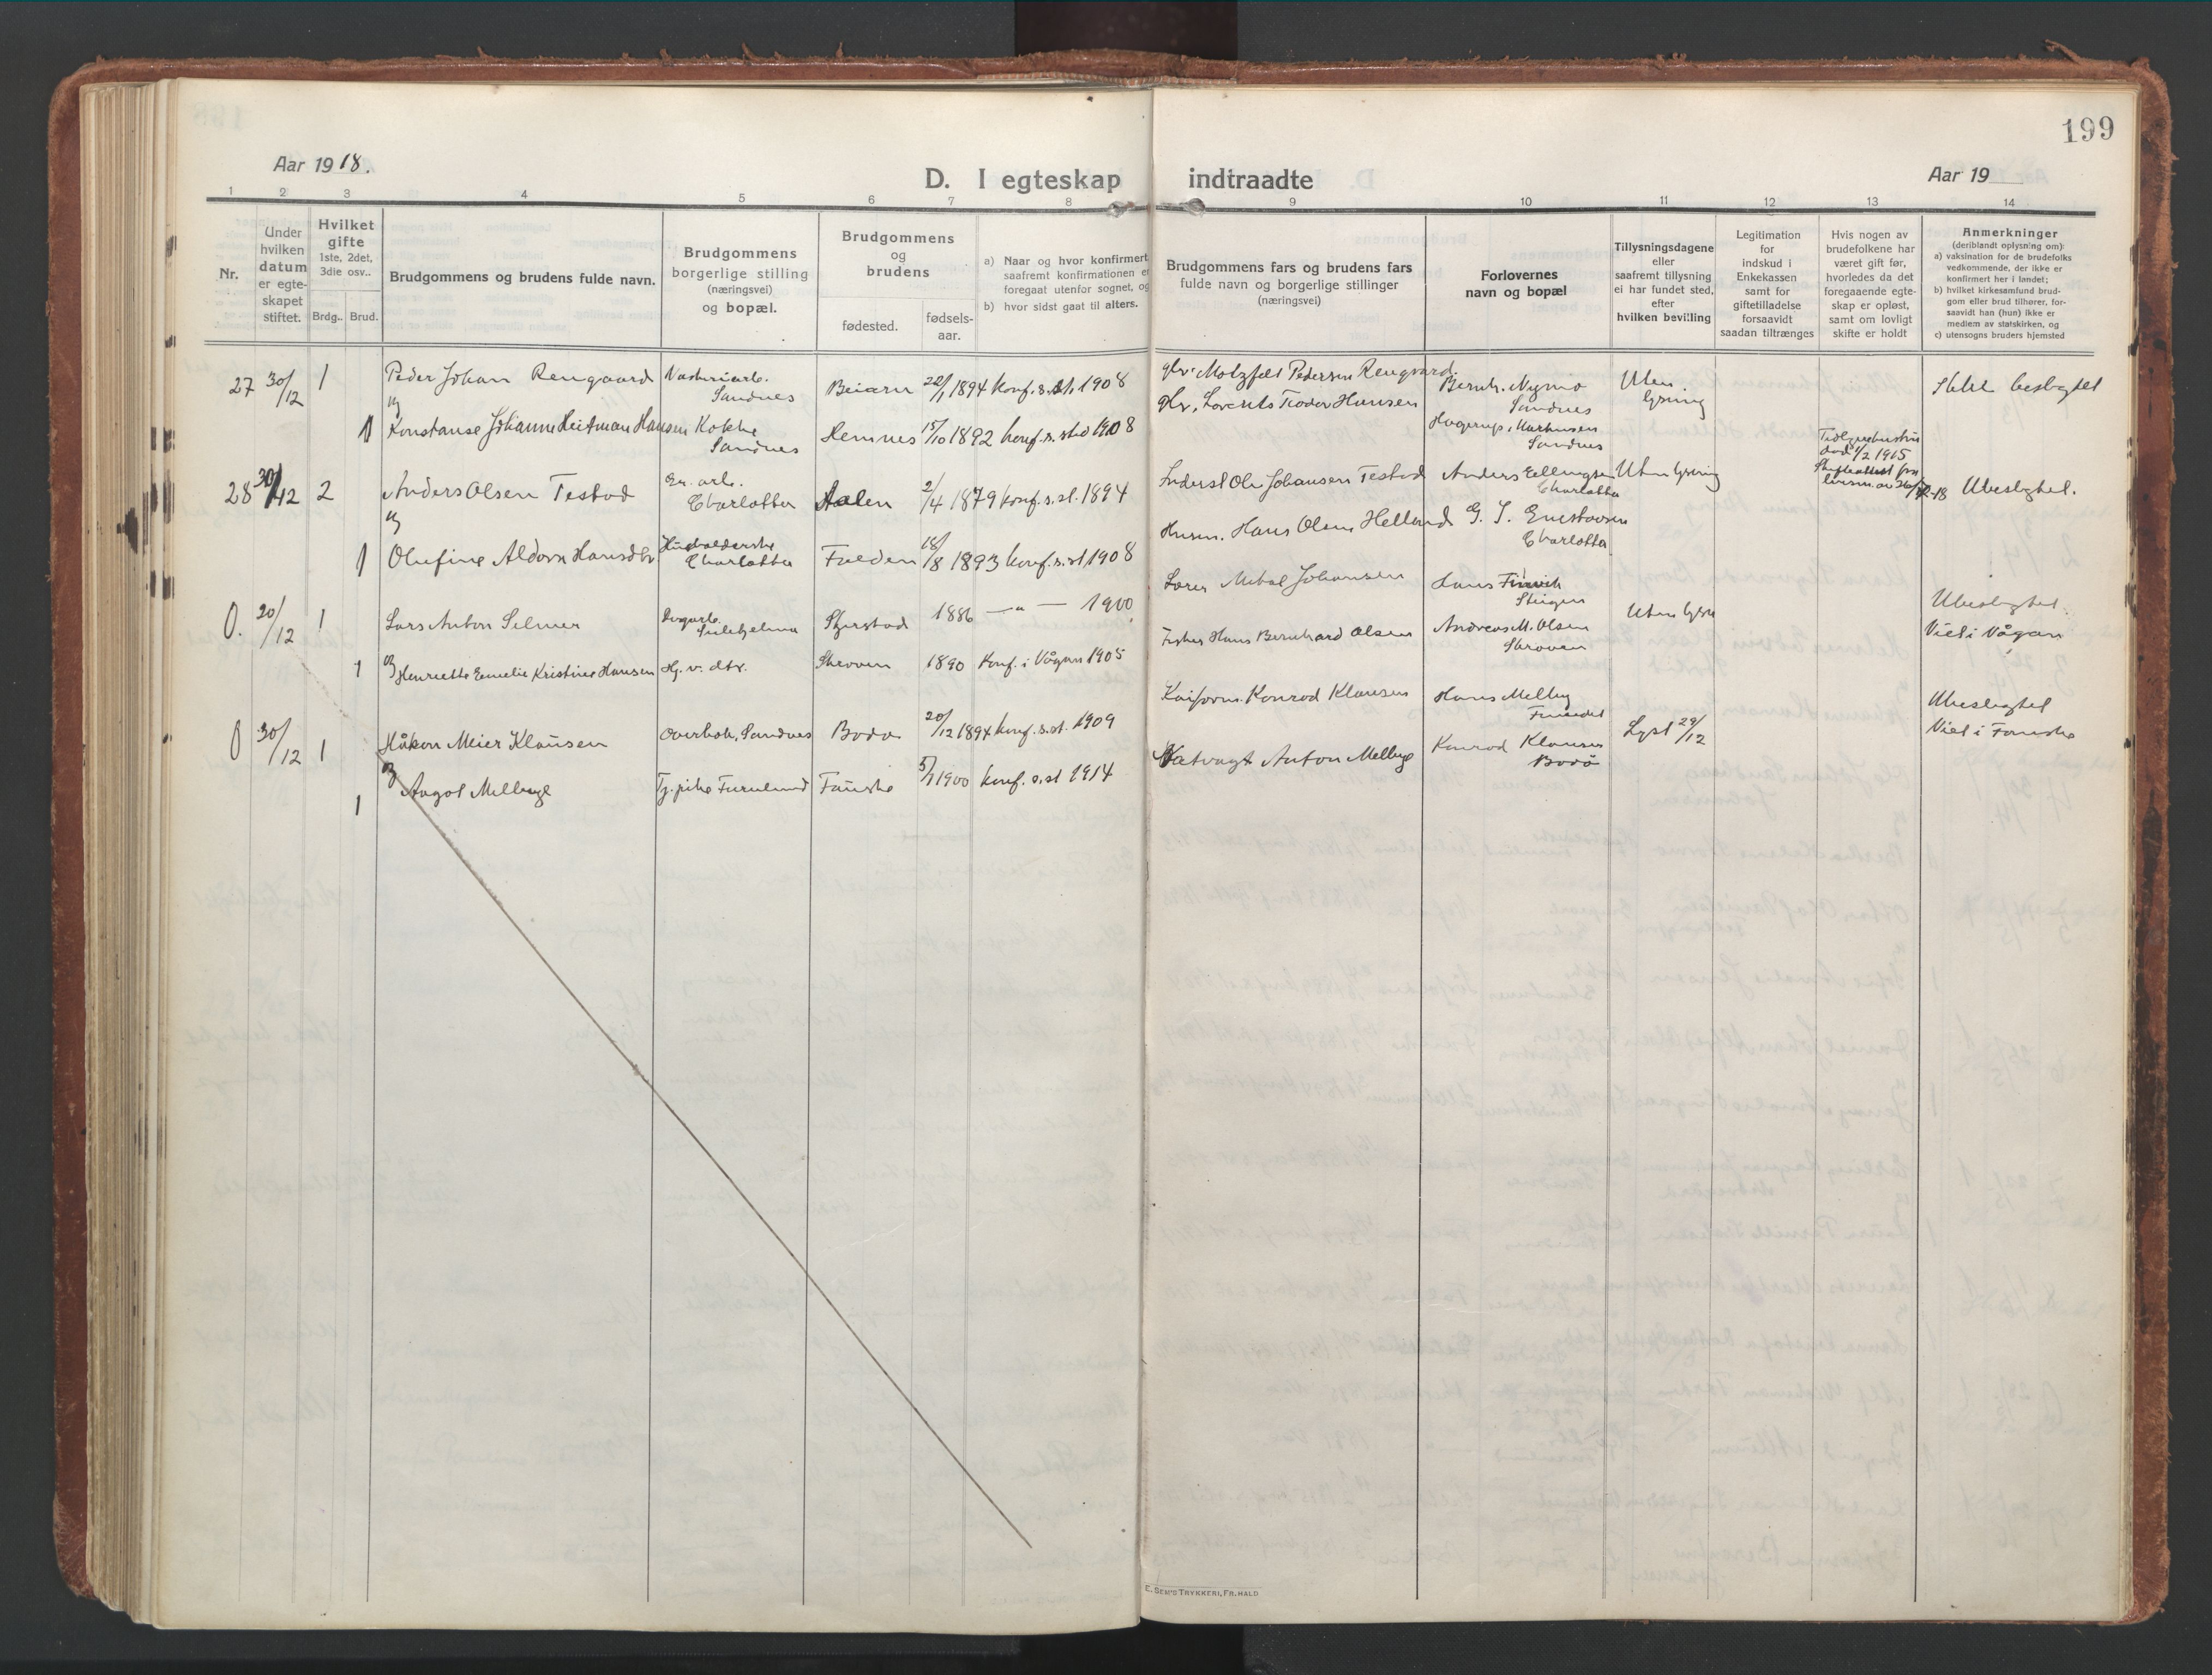 199
Aar 1918.
D. I egteskap indtraadte
Aar 19
1 2 3 4 5 6 7 8 9 10 11 12 13 14
Nr.
Under hvilken datum er egteskapet stiftet.
Hvilket gifte
1ste, 2det, 3die osv..
Brdg.. Brud.
Brudgommens og brudens fulde navn.
Brudgommens borgerlige stilling (næringsvei) og bopæl.
Brudgommens og brudens
fødested.
fødsels-aar.
a) Naar og hvor konfirmert,
saafremt konfirmationen er
foregaat utenfor sognet, og
b) hvor sidst gaat til alters.
Brudgommens fars og brudens fars
fulde navn og borgerlige stillinger
(næringsvei)
Forlovernes
navn og bopæl
Tillysningsdagene
eller
saafremt tillysning
ei har fundet sted,
efter
hvilken bevilling
Legitimation
for
indskud i
Enkekassen
samt for
giftetilladelse
forsaavidt
saadan tiltrænges
Hvis nogen av
brudefolkene har
været gift før,
hvorledes da det
foregaaende egte-
skap er opløst,
samt om lovligt
skifte er holdt
Anmerkninger
(deriblandt oplysning om):
a) vaksination for de brudefolks
vedkommende, der ikke er
konfirmert her i landet;
b) hvilket kirkesamfund brud-
gom eller brud tilhører, for-
saavidt han (hun) ikke er
medlem av statskirken, og
c) utensogns bruders hjemsted
27 30/12 1 Peder Johan Rengaard
Sandnes
Beiarn 1894 konf. s. st. 1908
Motzfelt Pedersen Rengaard
Sandnes
Uten lysning
beslegtet
og
1 Konstanse Johanne Heitman Hansen Kokke Sandnes
Hemnes 15/10 1892 konf. s. sted 1908
Hansen
Sandnes
28 30/12 2 Anders Olsen Testad
Charlotta
Aalen 2/4 1879 konf. s. st. 1894
Ole Johansen Testad
Anders Ellingsen Charlotta
Uten lysning
1/2 1915
Ubeslegtet.
og
1 Olufine Aldora Hansdtr.
Husholderske Charlotta
Folden 18/8 1893 konf. s. st. 1908
Husm. Hans Olsen Helland
Charlotta
0. 20/12 1 Lars Anton Selmer
Sulitjelma
1886 — " — 1900
Johansen
Steigen
Uten lysn
Ubeslegtet.
Viet i Vågan
og
1 Henriette Emelie Kristine Hansen Hj. v. dtr.
1890 konf. i Vågan 1905
Fisker Hans Bernhard Olsen
Andreas M. Olsen
0 30/12 1 Håkon Meier Klausen
Sandnes
Bodø 20/12 1894 konf. s. st. 1909
Konrad Klausen
Hans Melby
Lyst 29/12
Ubeslegtet
Viet i Fauske
og
1 Aagot Melbye
Tj. pike Furulund
Fauske 1900 konf. s. st. 1914
Natvagt Anton Melbye
Konrad Klausen Bodø
E. SEM'S TRYKKERI, FR.HALD